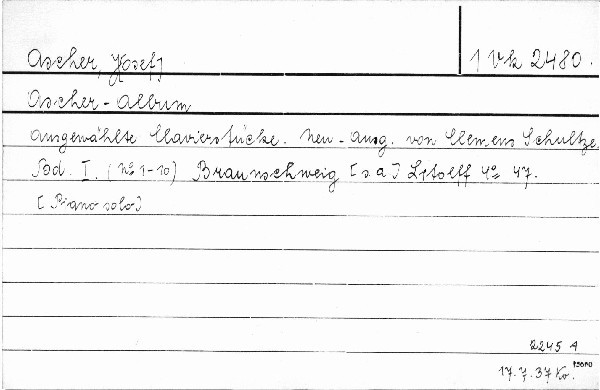 Ascher, [Josef] 1 Vk 2480.
Ascher-Album
ausgewählte Clavierstücke. Neu-Ausg. von Clemens Schultze.
Bd. I. (No 1-10) Braunschweig [s.a] Litolff 4o 47.
[Piano solo]
2245 A
17.7.37 Ko.